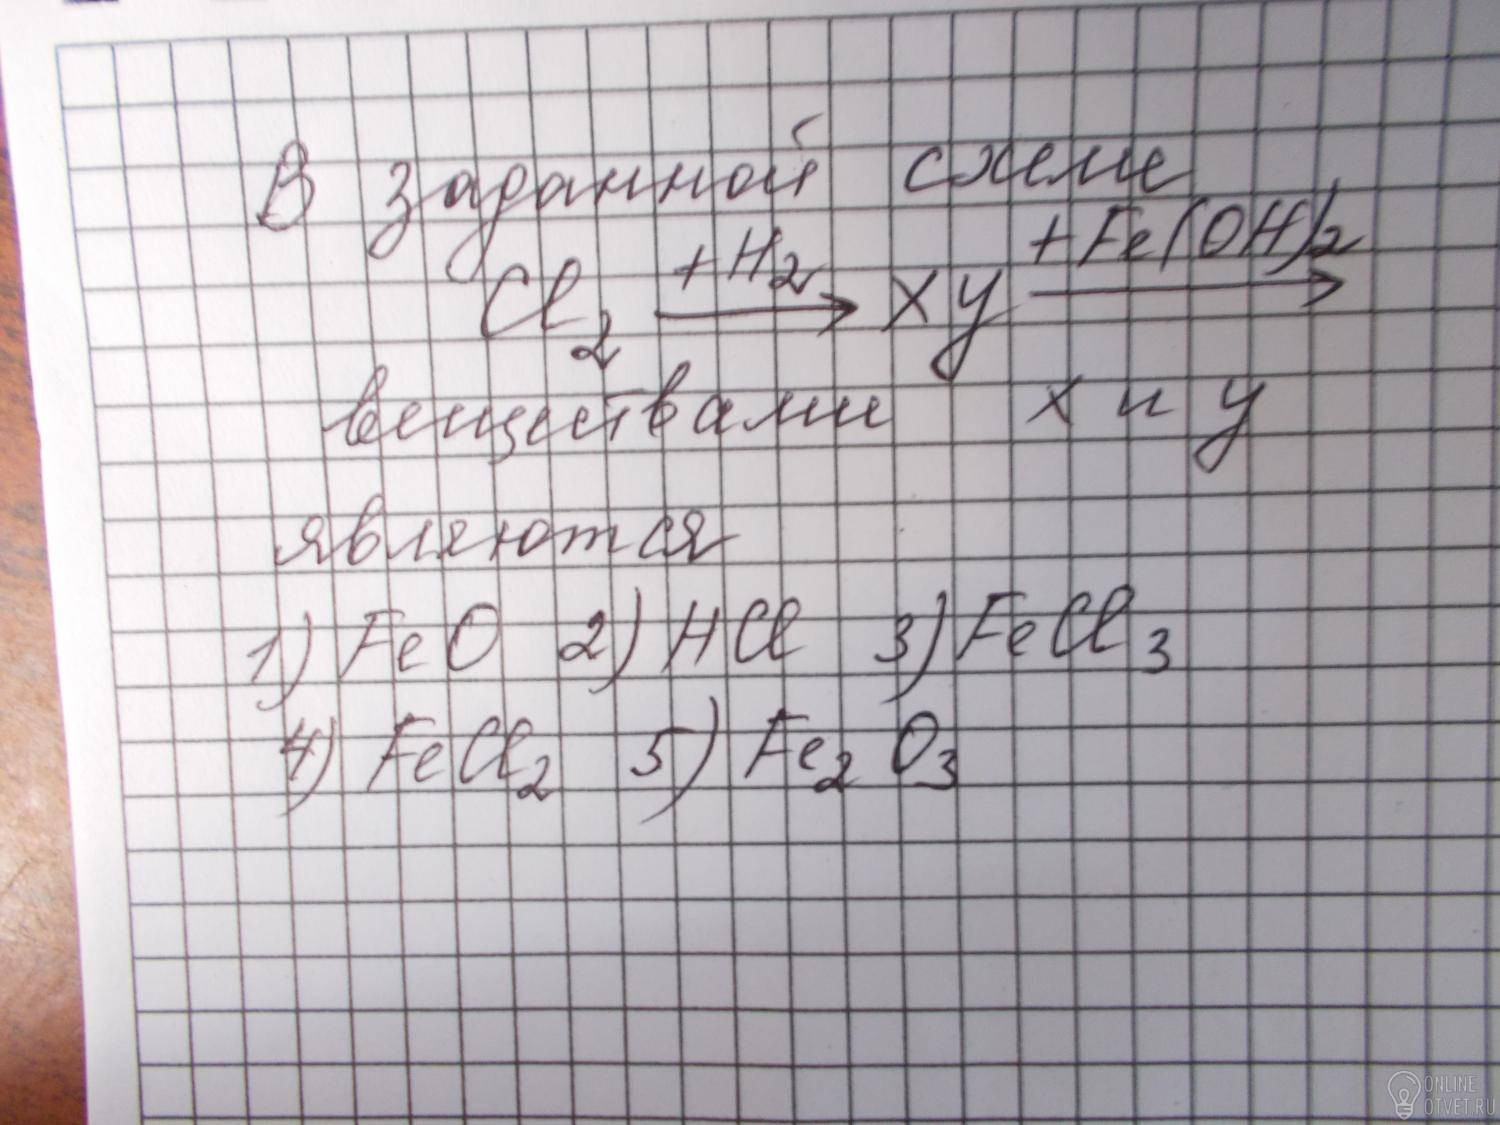 В заданной схеме
Cl₂ +H₂→ xy +Fe(OH)₂→
веществами x и y
являются
1) FeO 2) HCl 3) FeCl₃
4) FeCl₂ 5) Fe₂O₃
ONLINE
OTVET.RU